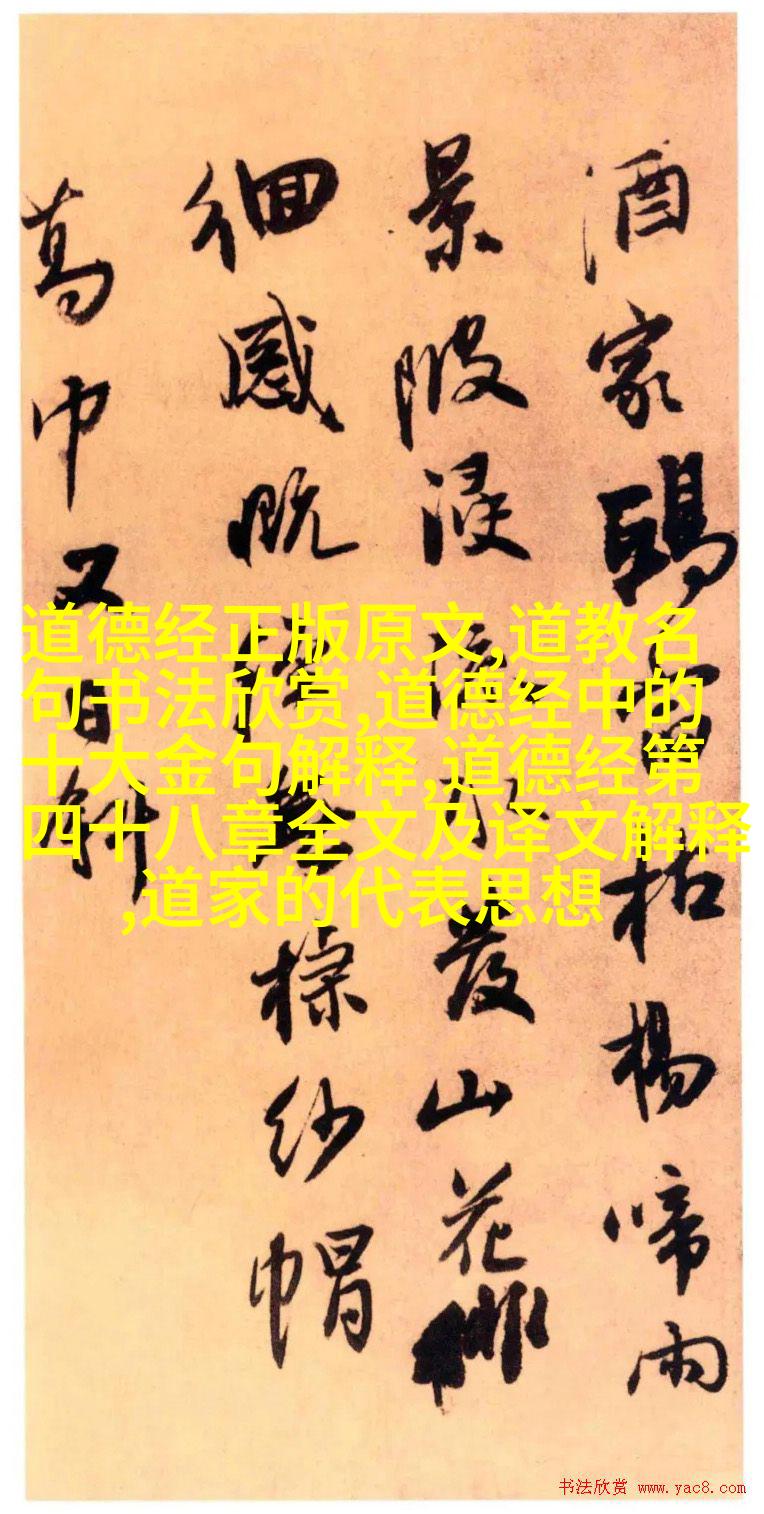 酒家枯楊啼雨
景陂浸水發山花
徊感慨紗帽
葛巾又日斜
道德经正版原文,道教名
句书法欣赏,道德经中的
十大金句解释,道德经第
四十八章全文及译文解释
,道家的代表思想
书法欣赏 www.yac8.com